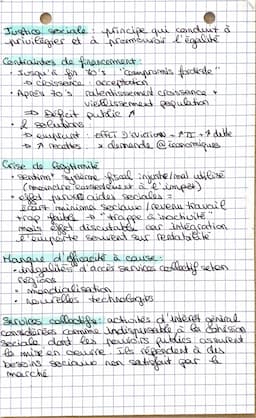 Justice sociale : principe qui conduit à
privilégier et à promouvoir l'égalité
Contraintes de financement :
• Jusqu'à fin 70's "compromis fordiste"
→ croissance acceptation
• Après 70's ralentissement croissance +
vieillissement population
⇒ Déficit public ↗
• 2 solutions
→ emprunt : effet d'éviction = ↗ TI - ↗ dette
→ ↗ recettes : ↘ demande @ économiques
Crise de légitimité
• sentimt système fiscal injuste/mal utilisé
(moindre consentement à l'impôt)
• effet pervers aides sociales =
écart minima sociaux/revenu travail
trop faible → "trappe à inactivité"
mais effet discutable car intégration
l'emporte souvent sur rentabilité
Manque d'efficacité à cause :
• inégalités d'accès services collectif selon
régions
• mondialisation
• nouvelles technologies
Services collectifs : activités d'intérêt général
considérées comme indispensable à la cohésion
sociale dont les pouvoirs publics assurent
la mise en oeuvre. Ils répondent à des
besoins sociaux non satisfait par le
marché